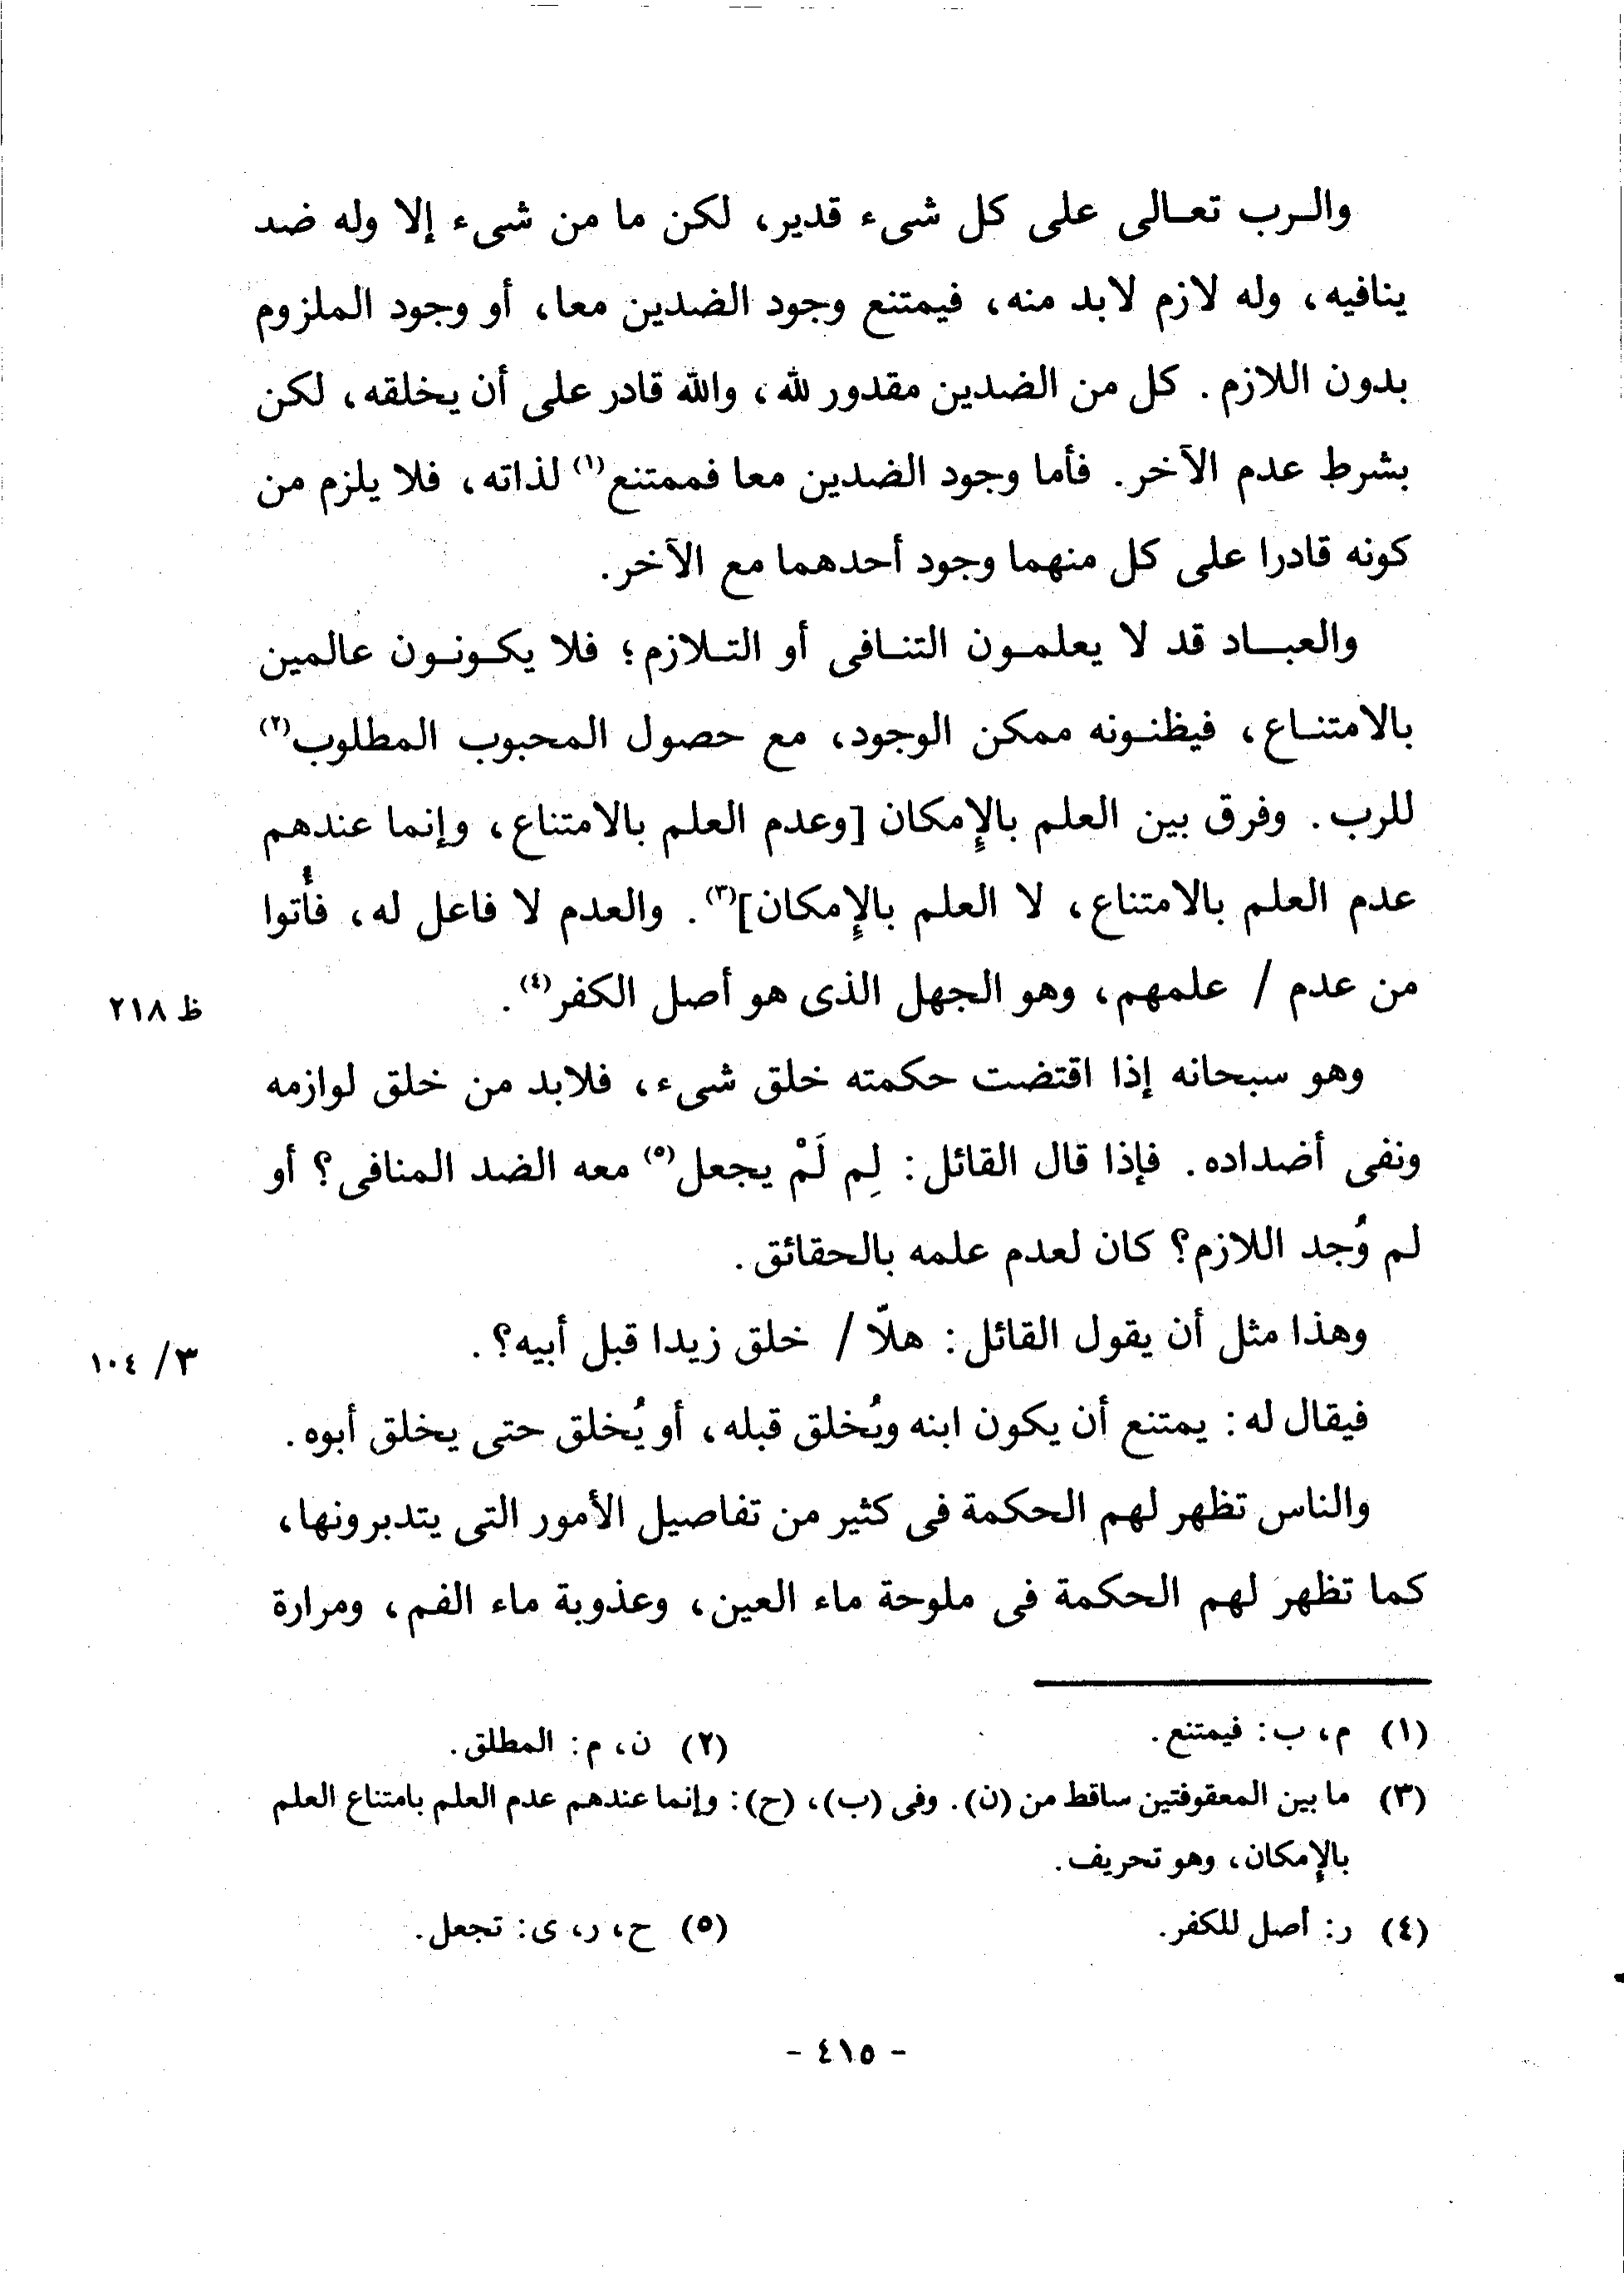 والرب تعالى على كل شىء قدير، لكن ما من شىء إلا وله ضد
ينافيه، وله لازم لابد منه، فيمتنع وجود الضدين معا، أو وجود الملزوم
بدون اللازم. كل من الضدين مقدور لله، والله قادر على أن يخلقه، لكن
بشرط عدم الآخر. فأما وجود الضدين معا فممتنع(١) لذاته، فلا يلزم من
كونه قادرا على كل منهما وجود أحدهما مع الآخر.
والعباد قد لا يعلمون التنافى أو التلازم؛ فلا يكونون عالمين
بالامتناع، فيظنونه ممكن الوجود، مع حصول المحبوب المطلوب(٢)
للرب. وفرق بين العلم بالإمكان [وعدم العلم بالامتناع، وإنما عندهم
عدم العلم بالامتناع، لا العلم بالإمكان](٣). والعدم لا فاعل له، فأُتوا
من عدم / علمهم، وهو الجهل الذى هو أصل الكفر(٤).
ظ ٢١٨
وهو سبحانه إذا اقتضت حكمته خلق شىء، فلابد من خلق لوازمه
ونفى أضداده. فإذا قال القائل: لِم لَمْ يجعل(٥) معه الضد المنافى؟ أو
لم وُجد اللازم؟ كان لعدم علمه بالحقائق.
وهذا مثل أن يقول القائل: هلّا / خلق زيدا قبل أبيه؟.
٣/ ١٠٤
فيقال له: يمتنع أن يكون ابنه ويُخلق قبله، أو يُخلق حتى يخلق أبوه.
والناس تظهر لهم الحكمة فى كثير من تفاصيل الأمور التى يتدبرونها،
كما تظهر لهم الحكمة فى ملوحة ماء العين، وعذوبة ماء الفم، ومرارة
(١) م، ب: فيمتنع. (٢) ن، م: المطلق.
(٣) ما بين المعقوفتين ساقط من (ن). وفى (ب)، (ح): وإنما عندهم عدم العلم بامتناع العلم
بالإمكان، وهو تحريف.
(٤) ر: أصل للكفر. (٥) ح، ر، ى: تجعل.
- ٤١٥ -